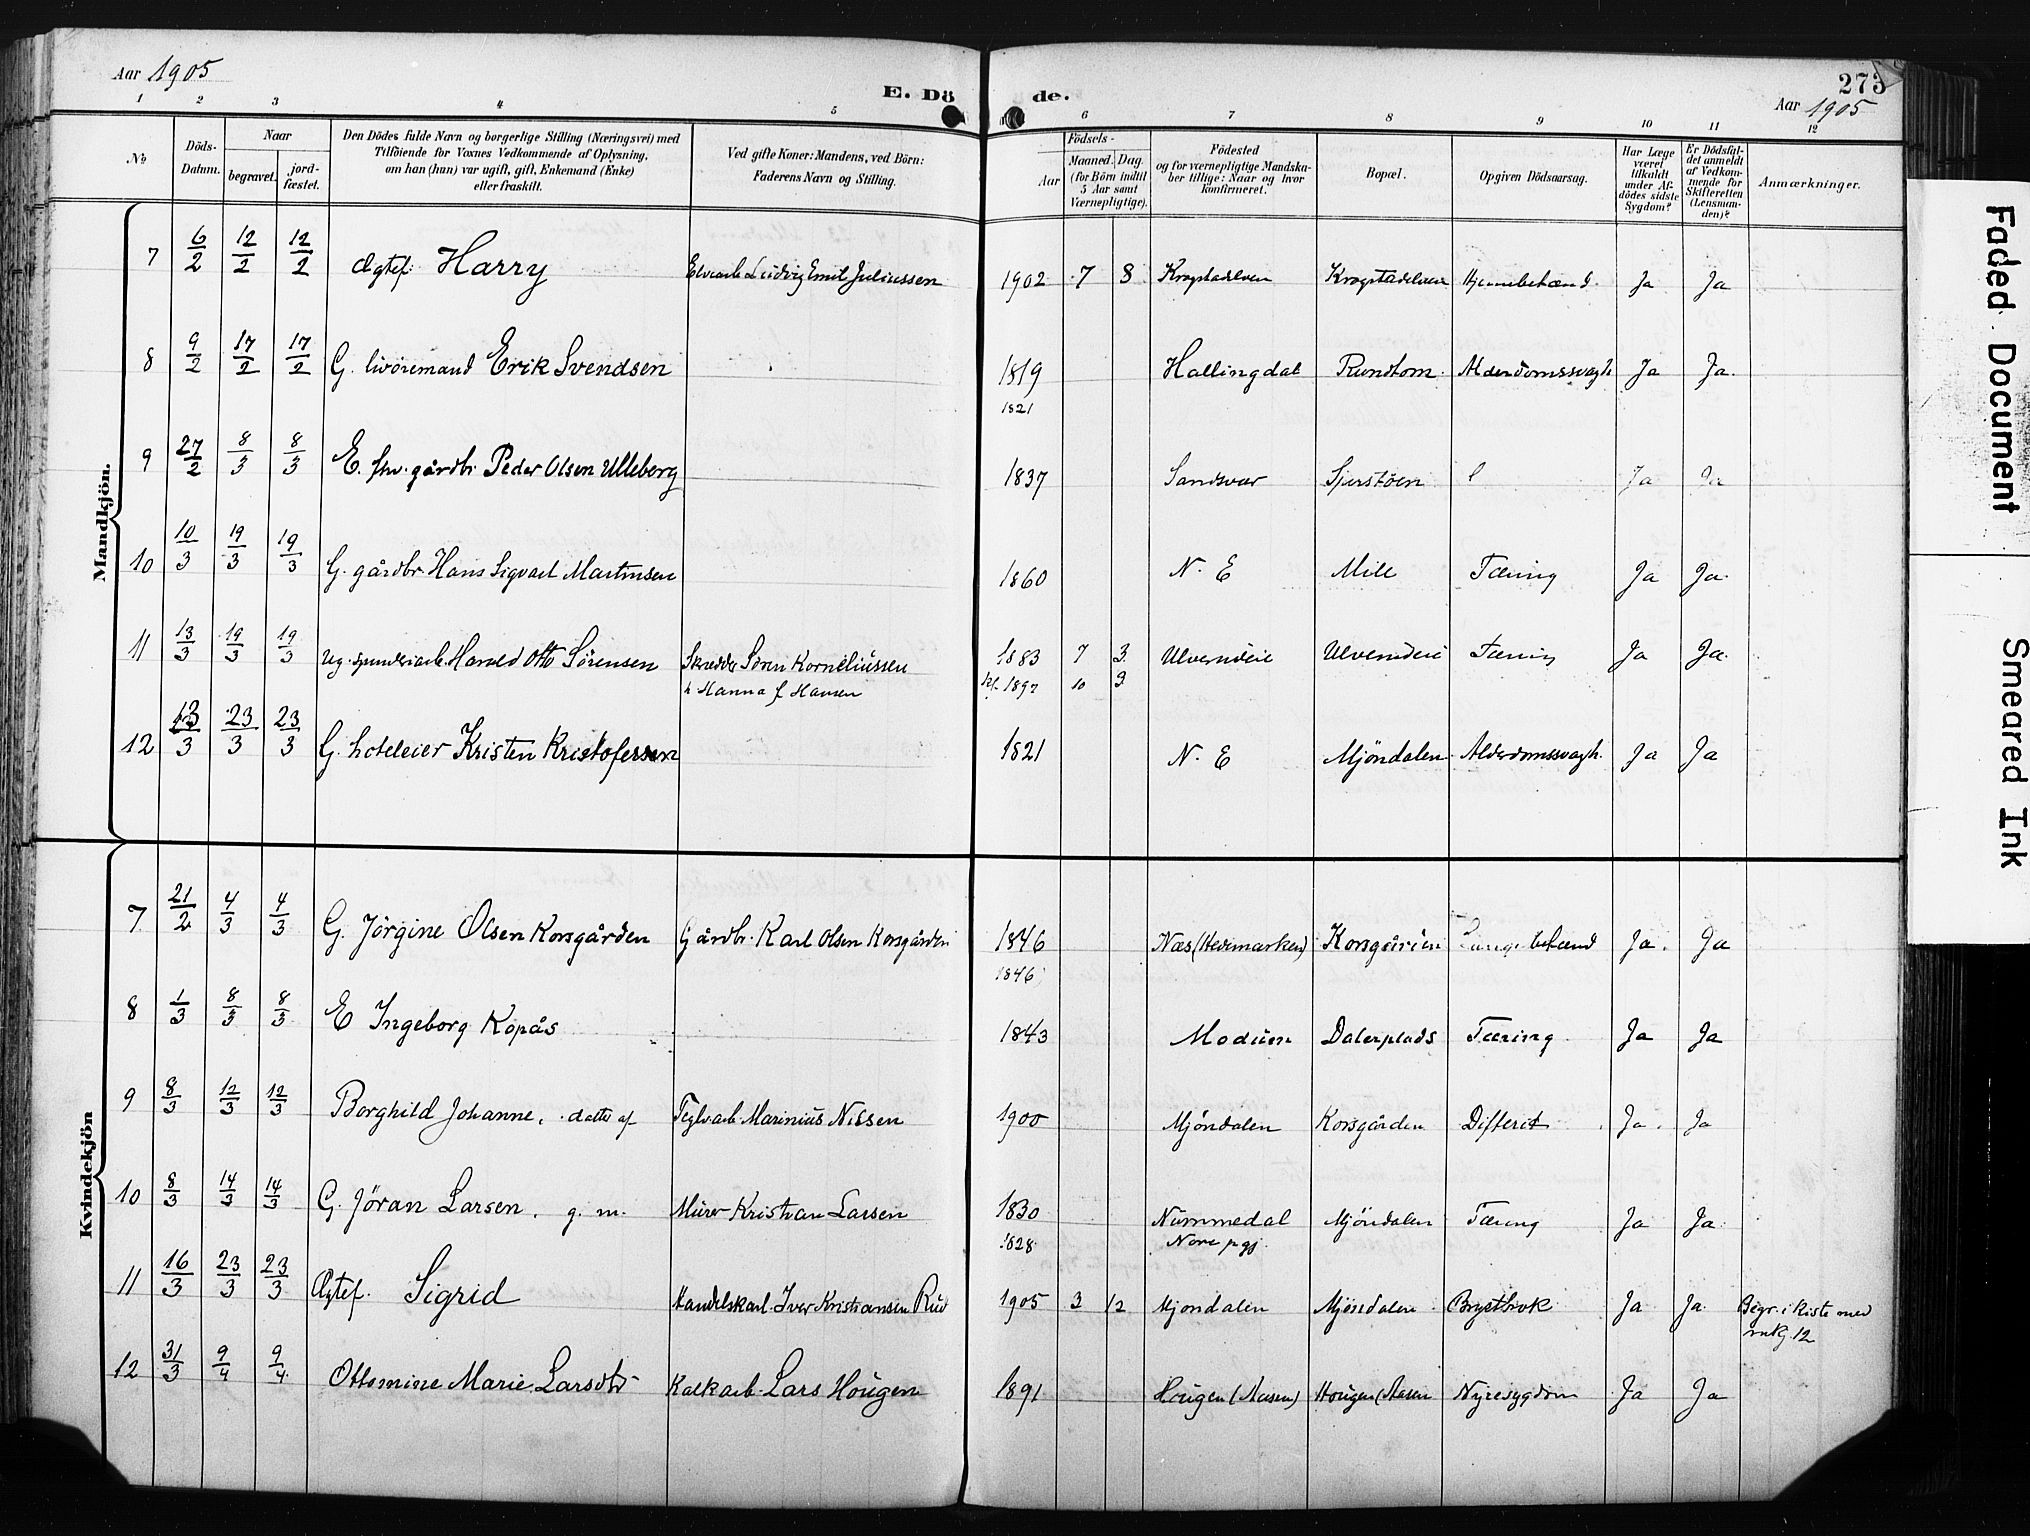 Aar 1905
E. Dö de.
Aar 1905
273
1 2 3 4 5 6 7 8 9 10 11 12
No
Döds-Datum.
Naar
begravet.
jord-fæstet.
Den Dödes fulde Navn og borgerlige Stilling (Næringsvei) med
Tilföiende for Voxnes Vedkommende af Oplysning,
om han (hun) var ugift, gift, Enkemand (Enke)
eller fraskilt.
Ved gifte Koner: Mandens, ved Börn:
Faderens Navn og Stilling.
Födsels-
Aar
Maaned. Dag.
(for Börn indtil
5 Aar samt
Værnepligtige).
Födested
og for værnepligtige Mandska-
ber tillige: Naar og hvor
konfirmeret.
Bopæl.
Opgiven Dödsaarsag.
Har Læge
været
tilkaldt
under Af-
dödes sidste
Sygdom?
Er Dödsfal-
det anmeldt
af Vedkom-
mende for
Skifteretten
(Lensman-
den)?
Anmærkninger.
Mandkjön.
7 6/2 12/2 12/2 Ægtef. Harry Elvearb. Ludvig Emil Juliussen 1902 7 8 Krogstadelven Krogstadelven Hjernebetænd. Ja Ja
8 9/2 17/2 17/2 G. livöremand Erik Svendsen 1819 Hallingdal Rundtom Alderdomssvagh. Ja Ja.
1821
9 27/2 8/3 8/3 E. fhv. gårdbr. Peder Olsen Ulleberg 1837 Sandsvær Ja Ja
10 10/3 19/3 19/3 G. gårdbr. Hans Sigvart Martinsen 1860 N. E Mile Tæring Ja Ja.
11 13/3 19/3 19/3 Ug. spinderiarb. Harald Otto Sörensen Skrædder Sören Korneliussen 1883 7 3 Ulverudeie Ulverudeie Tæring Ja Ja.
h Hanna f. Hansen kf. 1897 10 3
12 13/3 23/3 23/3 G. hoteleier Kristen Kristofersen 1821 N. E Mjöndalen Alderdomssvagh. Ja Ja
Kvindekjön
7 21/2 4/3 4/3 G. Jörgine Olsen Korsgården Gårdbr. Karl Olsen Korsgården 1846 Næs (Hedemarken) Korsgården Lungebetænd Ja. Ja
1846
8 1/3 8/3 8/3 E Ingeborg Kopås 1843 Modum Dalerplads Tæring Ja Ja
9 8/3 12/3 12/3 Borghild Johanne, datter af Teglvarb. Marinius Nilsen 1900 Mjöndalen Korsgården Difterit Ja. Ja
10 8/3 14/3 14/3 G. Jöran Larsen, g. m. Murer Kristian Larsen 1830 Nummedal Mjöndalen Tæring Ja Ja
1828 Nore pgj.
11 16/3 23/3 23/3 Ægtef. Sigrid Handelskarl Iver Kristiansen Rud 1905 3 12 Mjöndalen Mjöndalen Brystbrok Ja Ja Begr. i kiste med
mk. 12
12 31/3 9/4 9/4 Ottomine Marie Larsdtr Kalkarb. Lars Hougen 1891 Hougen (Aasen) Hougen (Aasen Nyresygdom Ja Ja
Faded Document
Smeared Ink